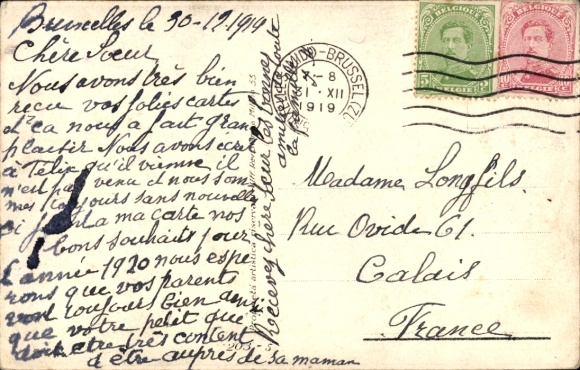 Bruxelles le 30-12-1919
Chère Sœur
Nous avons très bien
reçu vos jolies cartes
et ça nous a fait grand
plaisir Nous avons écrit
à Félix qu'il vienne il
n'est pas venu et nous som
mes toujours sans nouvelle
ci joint a ma carte nos
bons souhaits pour
L'année 1920 nous espe
rons que vos parents
vont toujours bien ainsi
que votre petit que
doit etre très content
d'être auprès de sa maman
Recevez chère Sœur les bonnes
amitiés de toute
la famille
BRUSSEL
8
XII
1919
BELGIQUE
5
BELGIQUE
10
Madame Longfils.
Rue Ovide 61.
Calais
France
Proprietà artistica riservata
203-5